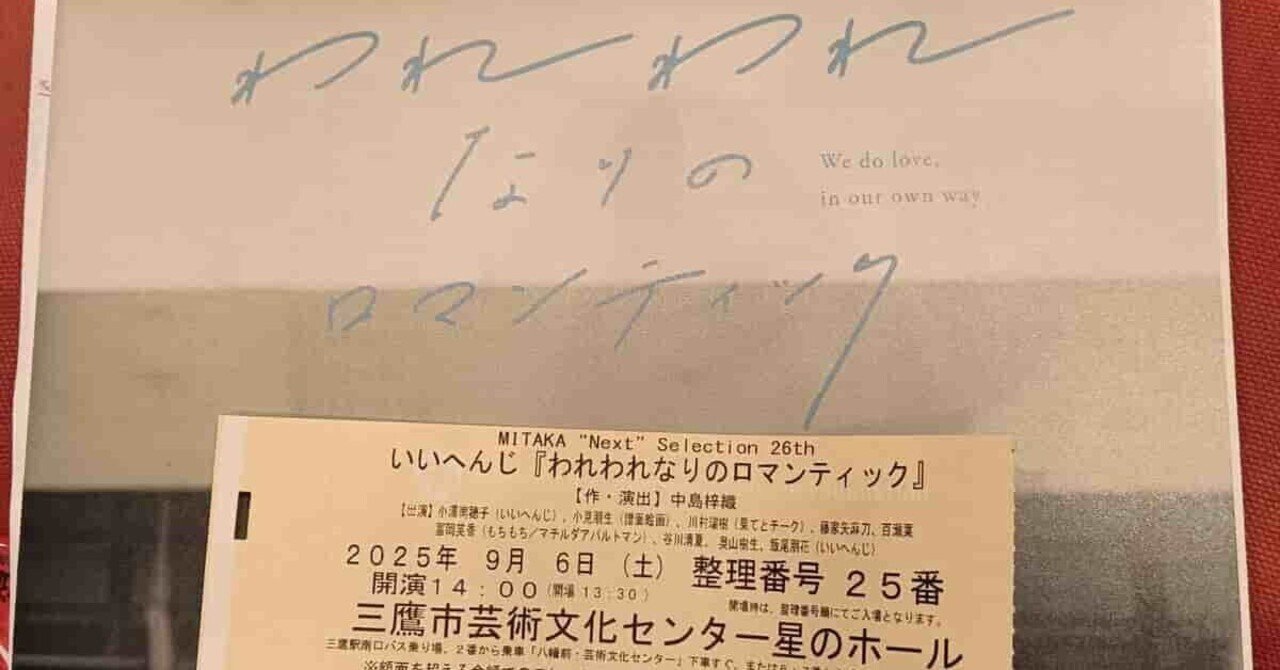 われわれ
なりの
We do love,
in our own way
ロマンティック
MITAKA "Next" Selection 26th
いいへんじ『われわれなりのロマンティック』
【作・演出】中島梓織
【出演】小澤南穂子(いいへんじ)、小見朋生(譜面絵画)、川村瑞樹(果てとチーク)、藤家矢麻刀、百瀬葉
冨岡英香(もちもち/マチルダアパルトマン)、谷川清夏、奥山樹生、飯尾朋花(いいへんじ)
2025年 9月 6日 (土) 整理番号 25番
開演14:00(開場 13:30)
開場時は、整理番号順にてご入場となります。
三鷹市芸術文化センター星のホール
三鷹駅南口バス乗り場、2番から乗車「八幡前・芸術文化センター」下車すぐ、または